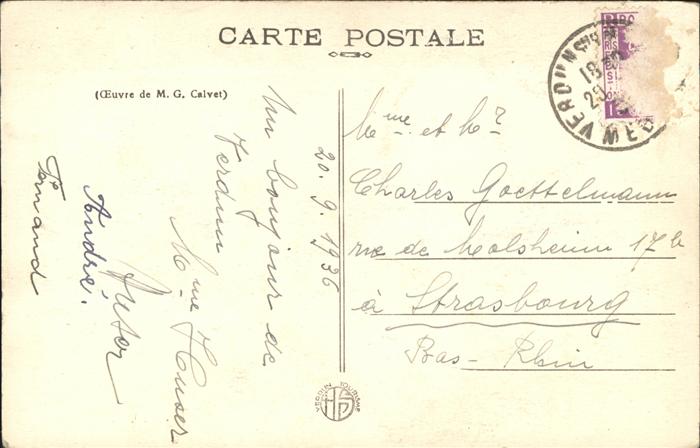 CARTE POSTALE
(Œuvre de M. G. Calvet)
20. 9. 1936
Un bonjour de
Verdun
Mme Huser
André.
Fernand
Mme et Mr
Charles Goettelmann
rue de Molsheim 17 b
à Strasbourg
Bas-Rhin
VERDUN S
18
20
VERDUN TOURISME